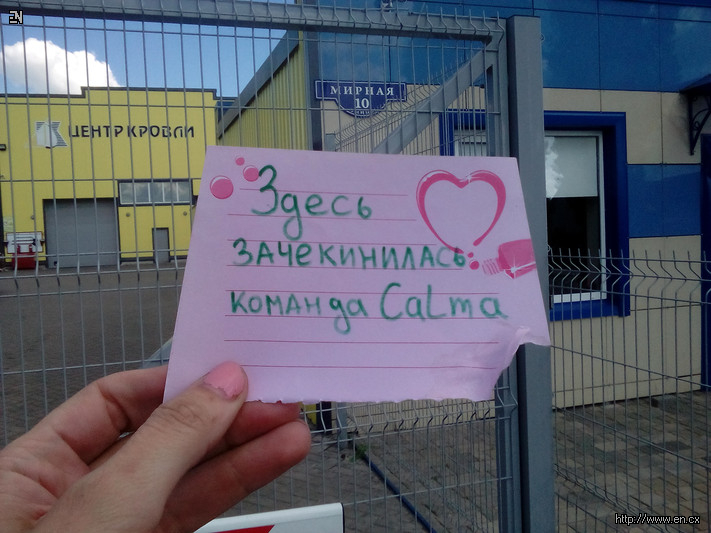 EN
МИРНАЯ
10
ЦЕНТР КРОВЛИ
Здесь
зачекинилась
команда CaLma
http://www.en.cx